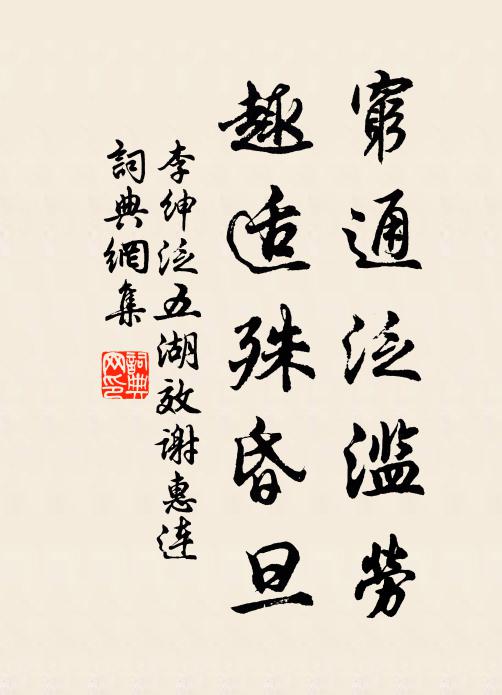 窮通泛濫勞
趣适殊昏旦
李紳泛五湖效謝惠連
詞典網集
詞典網印